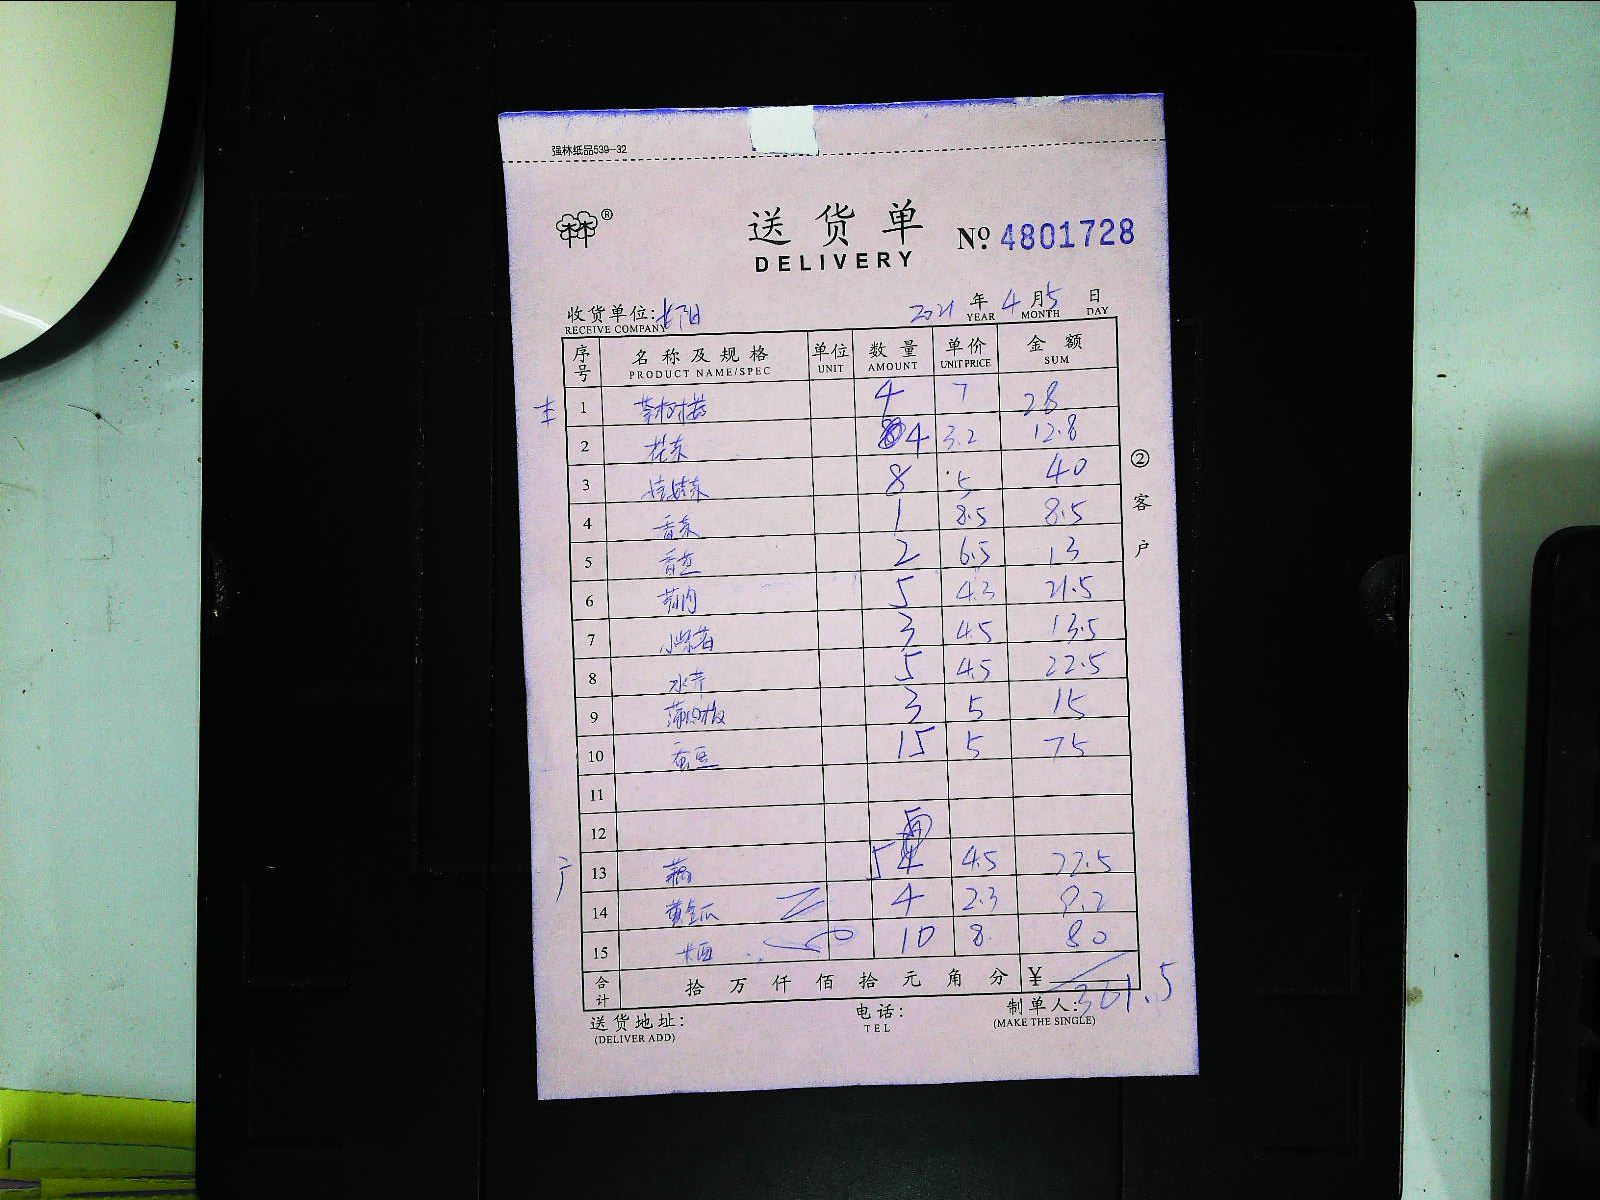 强林纸品539-32
送货单
DELIVERY
Nº 4801728
收货单位: 长阳
RECEIVE COMPANY
2021 年 4 月 5 日
YEAR MONTH DAY
序号 名称及规格 单位 数量 单价 金额
PRODUCT NAME/SPEC UNIT AMOUNT UNIT PRICE SUM
1 茶树菇 4 7 28
2 花菜 4 3.2 12.8
3 娃娃菜 8 5 40
4 香菜 1 8.5 8.5
5 香葱 2 6.5 13
6 5 4.3 21.5
7 3 4.5 13.5
8 水芹 5 4.5 22.5
9 蒲 3 5 15
10 蚕豆 15 5 75
11
12
13 藕 5 4.5 22.5
14 黄金瓜 4 2.3 9.2
15 西 10 8 80
合计 拾万仟佰拾元角分 ¥ 361.5
② 客户
送货地址:
(DELIVER ADD)
电话:
TEL
制单人:
(MAKE THE SINGLE)